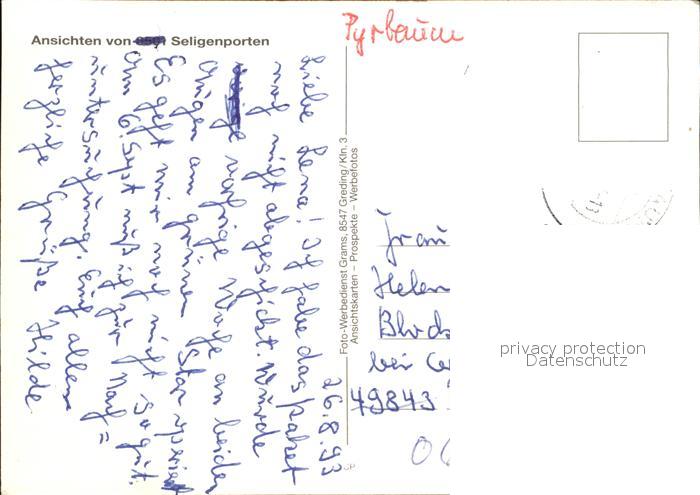 Ansichten von 8501 Seligenporten
Pyrbaum
26.8.93
Liebe Lena! Ich habe das Paket
noch nicht abgeschickt. Wurde
vorige Woche an beiden
Augen am grünen Star operiert
Es geht mir noch nicht so gut.
Am 6. Sept muß ich zur Nach=
untersuchung. Euch allen
herzliche Grüße Hilde
Foto-Werbedienst Grams, 8547 Greding/Kln. 3
Ansichtskarten – Prospekte – Werbefotos
Frau
Helen
bei
49843
privacy protection
Datenschutz